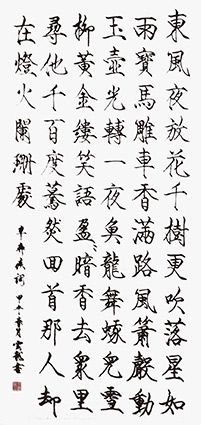 東風夜放花千樹更吹落星如
雨寶馬雕車香滿路風簫聲動
玉壺光轉一夜魚龍舞蛾兒雪
柳黃金縷笑語盈〻暗香去眾里
尋他千百度驀然回首那人却
在燈火闌珊處
辛棄疾詞 甲午 書